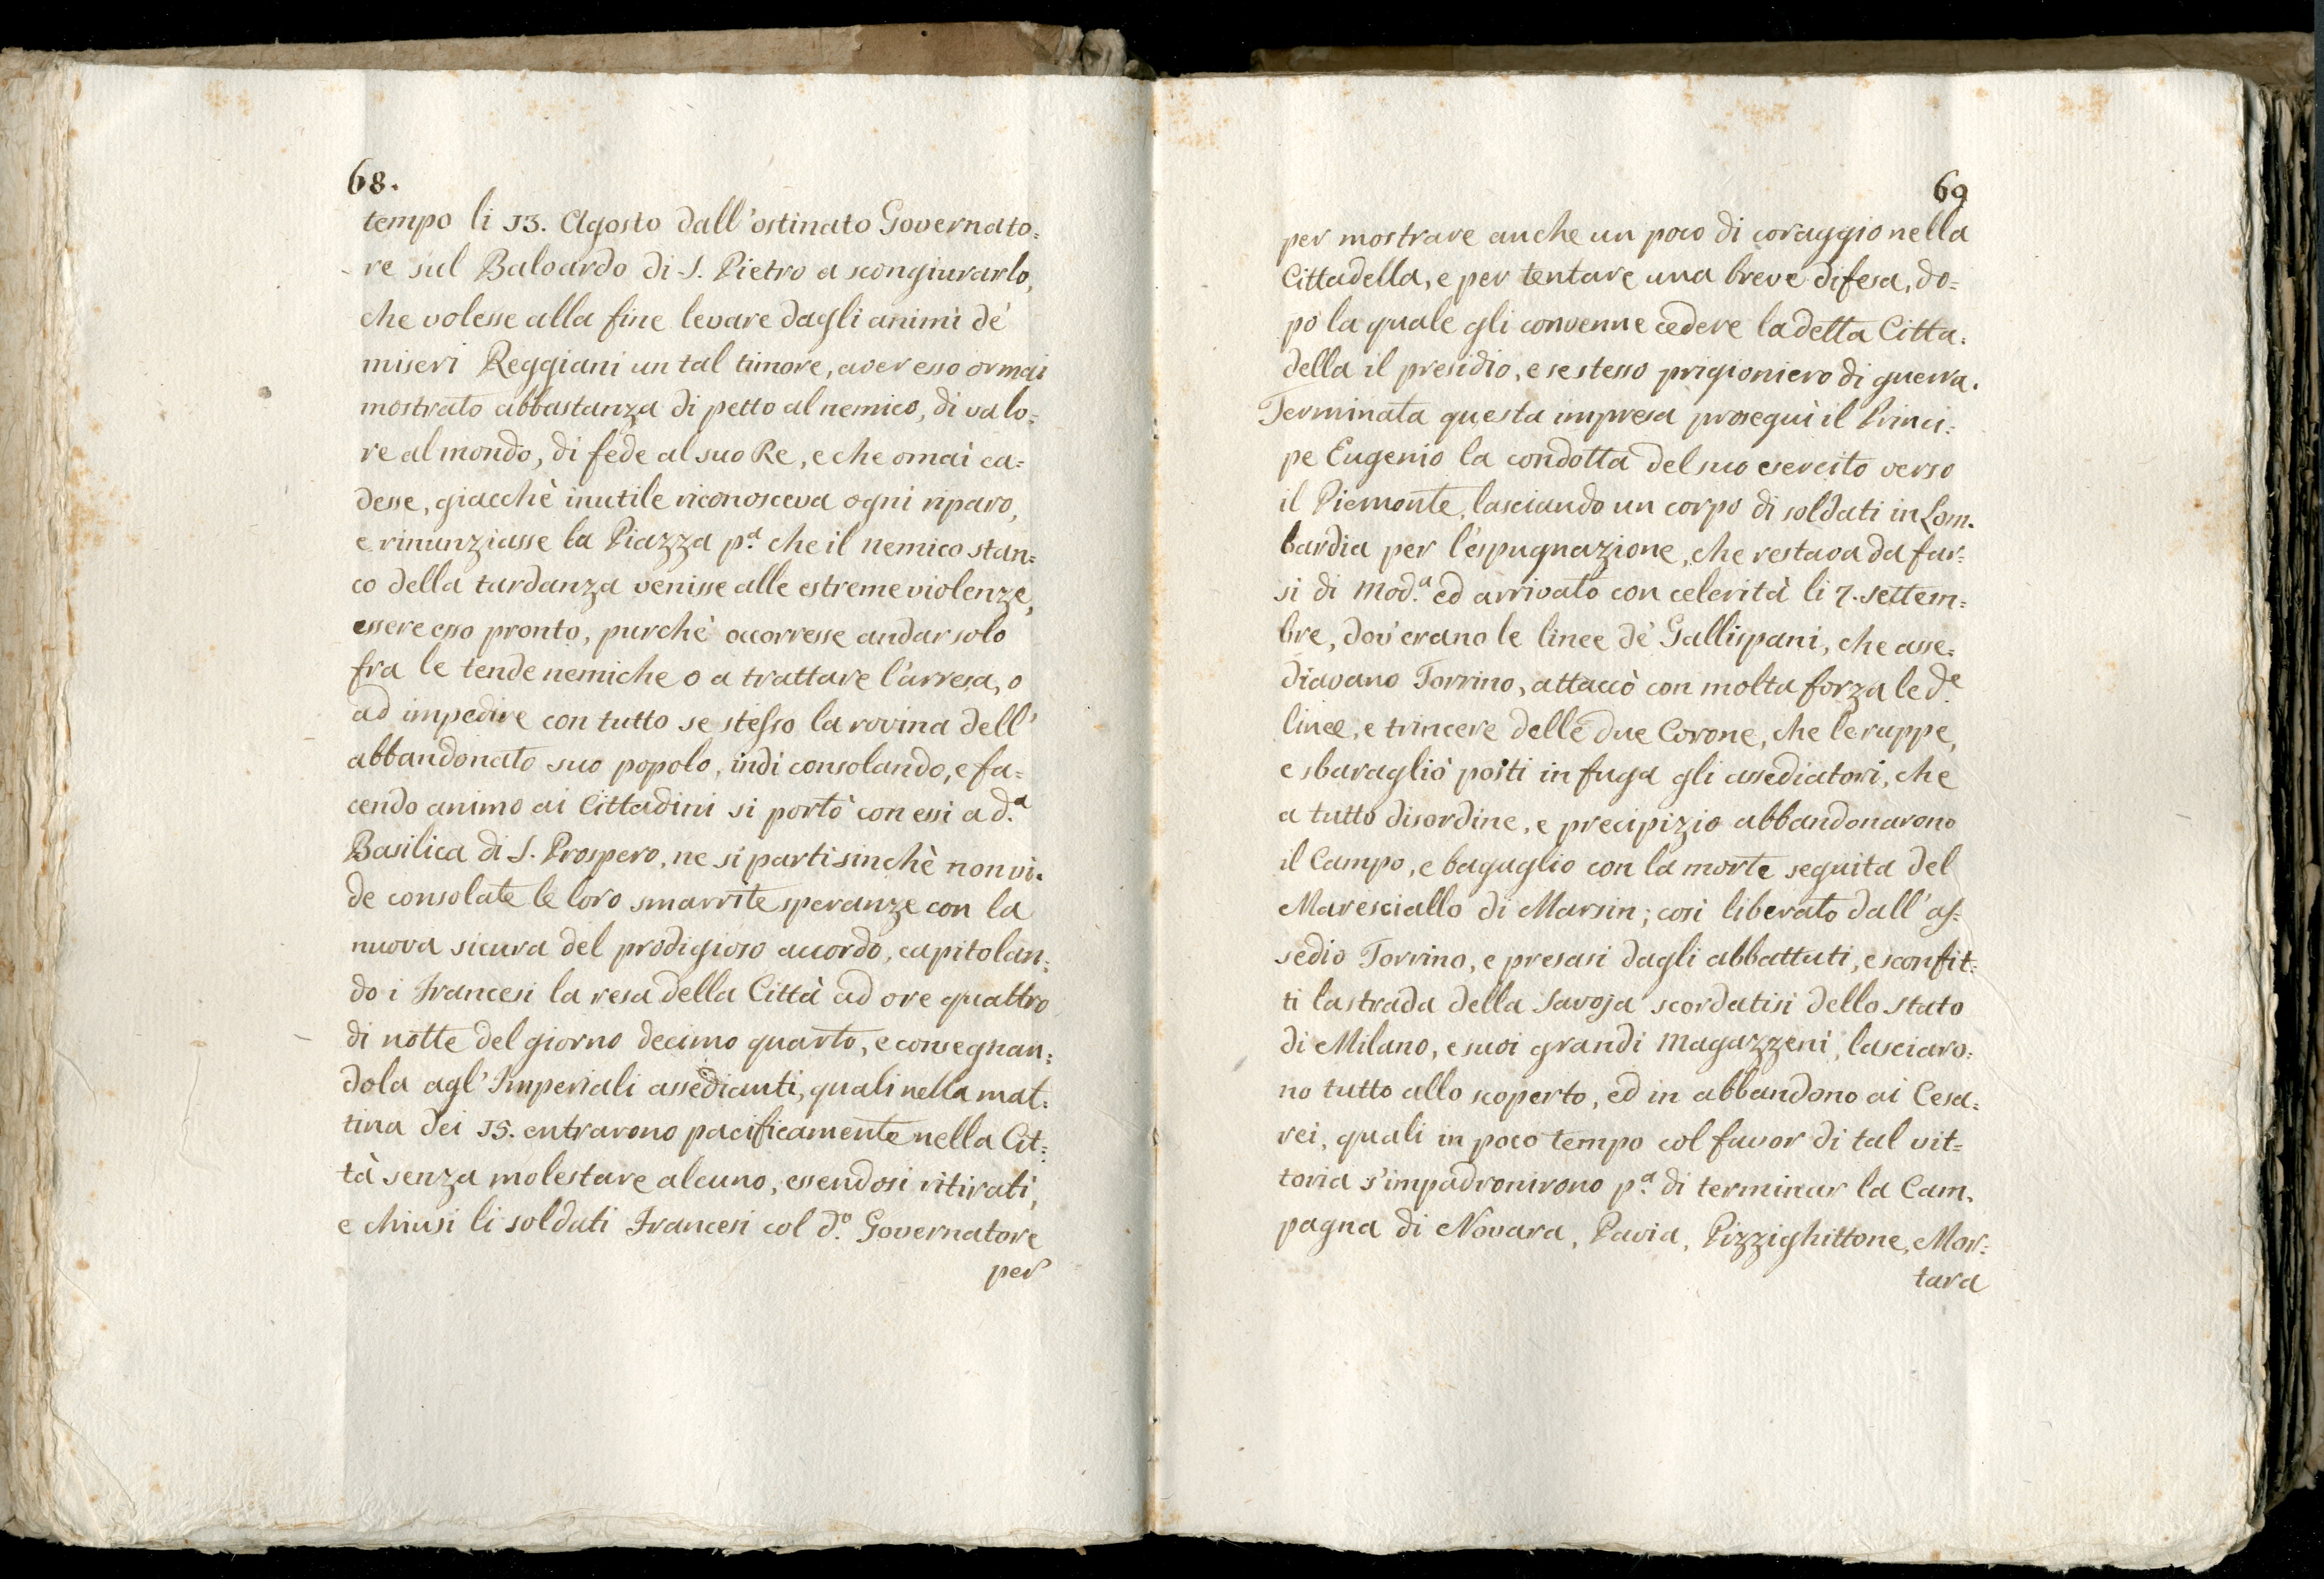 68.
tempo li 13. Agosto dall'ostinato Governato=
re sul Baloardo di S. Pietro a scongiurarlo,
che volesse alla fine levare dagli animi de'
miseri Reggiani un tal timore, aver esso ormai
mostrato abbastanza di petto al nemico, di valo=
re al mondo, di fede al suo Re, e che omai ca=
desse, giacchè inutile riconosceva ogni riparo,
e rinunziasse la Piazza p.a che il nemico stan=
co della tardanza venisse alle estreme violenze,
essere esso pronto, purchè occorresse andar solo
fra le tende nemiche o a trattare l'arresa, o
ad impedire con tutto se stesso la rovina dell'
abbandonato suo popolo, indi consolando, e fa=
cendo animo ai Cittadini si portò con essi a d.a
Basilica di S. Prospero, ne si parti sinchè non vi=
de consolate le loro smarrite speranze con la
nuova sicura del prodigioso accordo, capitolan=
do i Francesi la resa della Città ad ore quattro
di notte del giorno decimo quarto, e consegnan=
dola agl'Imperiali assedianti, quali nella mat=
tina dei 15. entrarono pacificamente nella Cit=
tà senza molestare alcuno, essendosi ritirati,
e chiusi li soldati Francesi col d.o Governatore
per
69
per mostrare anche un poco di coraggio nella
Cittadella, e per tentare una breve difesa, do=
po la quale gli convenne cedere la detta Citta=
della il presidio, e se stesso prigioniero di guerra.
Terminata questa impresa prosegui il Princi=
pe Eugenio la condotta del suo esercito verso
il Piemonte, lasciando un corpo di soldati in Lom=
bardia per l'espugnazione, che restava da far=
si di Mod.a ed arrivato con celerità li 7. settem=
bre, dov'erano le linee de' Gallispani, che asse=
diavano Torrino, attaccò con molta forza le d.e
linee, e trincere delle due Corone, che le ruppe,
e sbaragliò posti in fuga gli assediatori, che
a tutto disordine, e precipizio abbandonarono
il Campo, e bagaglio con la morte seguita del
Maresciallo di Marsin; cosi liberato dall'as=
sedio Torrino, e presasi dagli abbattuti, e sconfit=
ti la strada della Savoja scordatisi dello stato
di Milano, e suoi grandi Magazzeni, lasciaro=
no tutto allo scoperto, ed in abbandono ai Cesa=
rei, quali in poco tempo col favor di tal vit=
toria s'impadronirono p.a di terminar la Cam=
pagna di Novara, Pavia, Pizzighittone, Mor=
tara